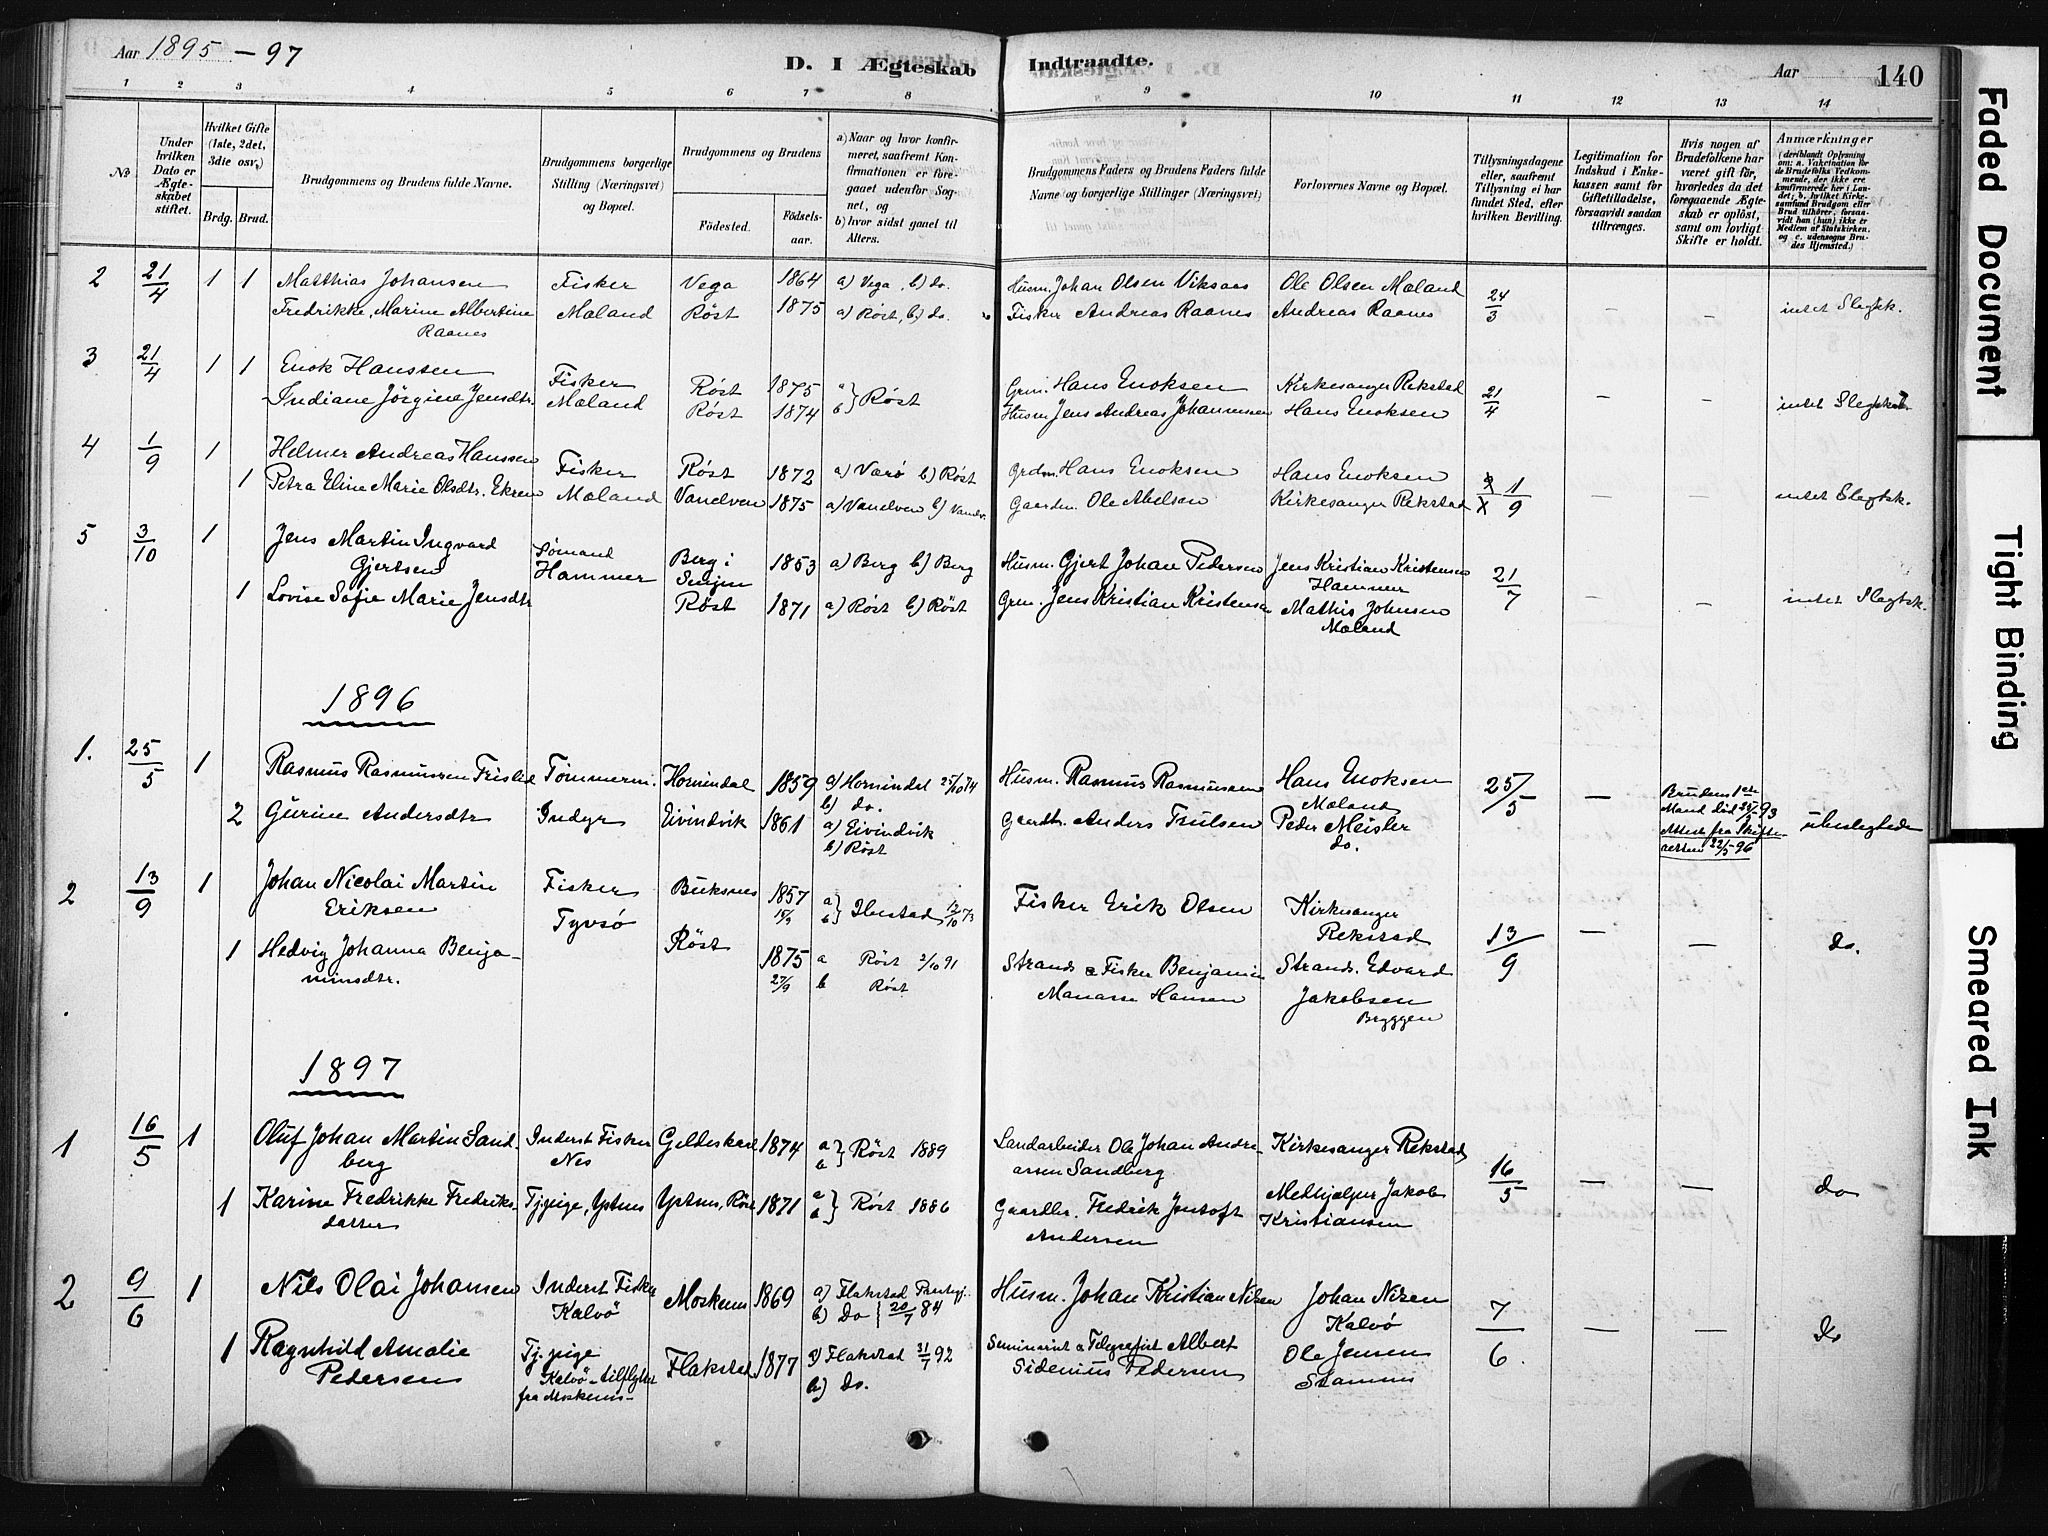 Aar 1895-97
D. I Ægteskab Indtraadte.
Aar
140
1 2 3 4 5 6 7 8 9 10 11 12 13 14
No
Under hvilken Dato er Ægteskabet stiftet.
Hvilket Gifte (1ste, 2det, 3die osv.)
Brdg. Brud.
Brudgommens og Brudens fulde Navne.
Brudgommens borgerlige Stilling (Næringsvei) og Bopæl.
Brudgommens og Brudens
Fødested.
Fødselsaar.
a) Naar og hvor konfirmeret, saafremt Konfirmationen er foregaaet udenfor Sognet, og
b) hvor sidst gaaet til Alters.
Brudgommens Faders og Brudens Faders fulde Navne og borgerlige Stillinger (Næringsvei)
Forlovernes Navne og Bopæl.
Tillysningsdagene eller, saafremt Tillysning ei har fundet Sted, efter hvilken Bevilling.
Legitimation for Indskud i Enkekassen samt for Giftetilladelse, forsaavidt saadan tiltrænges.
Hvis nogen af Brudefolkene har været gift før, hvorledes da det foregaaende Ægteskab er opløst, samt om lovligt Skifte er holdt.
Anmærkninger
(deriblandt Oplysning om: a. Vakcination for de Brudefolks Vedkommende, der ikke ere konfirmerede her i Landet; b. hvilket Kirkesamfund Brudgom eller Brud tilhører, forsaavidt han (hun) ikke er Medlem af Statskirken, og c. udensogns Brudes Hjemsted.)
2 21/4 1 1 Matthias Johansen Fisker Vega 1864 a) Vega, b) do. Husm. Johan Olsen Viksaas Ole Olsen Mæland 24/3 — — intet Slegtsk.
Fredrikke Marine Albertine Raanes Mæland Røst 1875 a) Røst, b) do. Fisker Andreas Raanes Andreas Raanes
3 21/4 1 1 Enok Hanssen Fisker Røst 1875 a) b) Røst Grm. Hans Enoksen Kirkesanger Rekstad 21/4 — — intet Slegtsk.
Indiane Jørgine Jensdtr. Mæland Røst 1874 Husm. Jens Andreas Johannesen Hans Enoksen
4 1/9 1 Helmer Andreas Hanssen Fisker Røst 1872 a) Værø b) Røst Grdm. Hans Enoksen Hans Enoksen 1/9 — — intet Slegtsk.
1 Petra Eline Marie Olsdtr. Ekren Mæland Vanelven 1875 a) Vanelven b) Vanelv. Gaardm. Ole Abelsen Kirkesanger Rekstad
5 3/10 1 Jens Martin Ingvard Gjertsen Sømand Hammer Berg i Senjen 1853 a) Berg b) Berg Husm. Gjert Johan Pedersen Jens Kristian Kristensen Hammer 21/7 — — intet Slegtsk.
1 Lovise Sofie Marie Jensdtr Røst 1871 a) Røst b) Røst Grm. Jens Kristian Kristensen Mathis Johnsen Mæland
1896
1. 25/5 1 Rasmus Rasmussen Frislid Tømmerm. Hornindal 1859 a) Hornindal 25/10 74 b) do. Husm. Rasmus Rasmussen Hans Enoksen Mæland 25/5 — Brudens 1ste Mand død 25/3 93
2 Gurine Andersdtr Indyr Eivindvik 1861 a) Eivindvik b) Røst Gaardbr. Anders Trulsen Peder Meisler do. Attest fra Skifteretten 22/5 96 ubeslegtede
2 13/9 1 Johan Nicolai Martin Eriksen Fisker Tyvsø Buksnes 1857 15/3 a b} Ibestad 12/10 73 Fisker Erik Olsen Kirkesanger Rekstad 13/9 — — do.
1 Hedvig Johanna Benjaminsdtr. Røst 1875 27/9 a Røst 2/10 91 b Røst Strands. & Fisker Benjamin Manasse Hansen Strands. Edvard Jakobsen Bryggen
1897
1 16/5 1 Oluf Johan Martin Sandberg Inderst Fisker Nes Gildeskaal 1874 a b} Røst 1889 Landarbeider Ole Johan Andreassen Sandberg Kirkesanger Rekstad 16/5 — — do
1 Karine Fredrikke Fredriksdatter Tj.pige, Ystnes Ystnes, Røst 1871 a b} Røst 1886 Gaardbr. Fredrik Jentoft Andersen Medhjælper Jakob Kristiansen
2 9/6 1 Nils Olai Johansen Inderst Fisker Kalvø Moskenes 1869 a) Flakstad Præstegj. b) Do 20/7 84 Husm. Johan Kristian Nilsen Johan Nilsen Kalvø 7/6. — — Do
1 Ragnhild Amalie Pedersen Tj.pige Kalvø - tilflyttet fra Moskenes- Flakstad 1877 a) Flakstad 31/7 92 b) do. Seminarist & Telegrafist Albert Sidenius Pedersen Ole Jensen Stamnes
Faded Document
Tight Binding
Smeared Ink